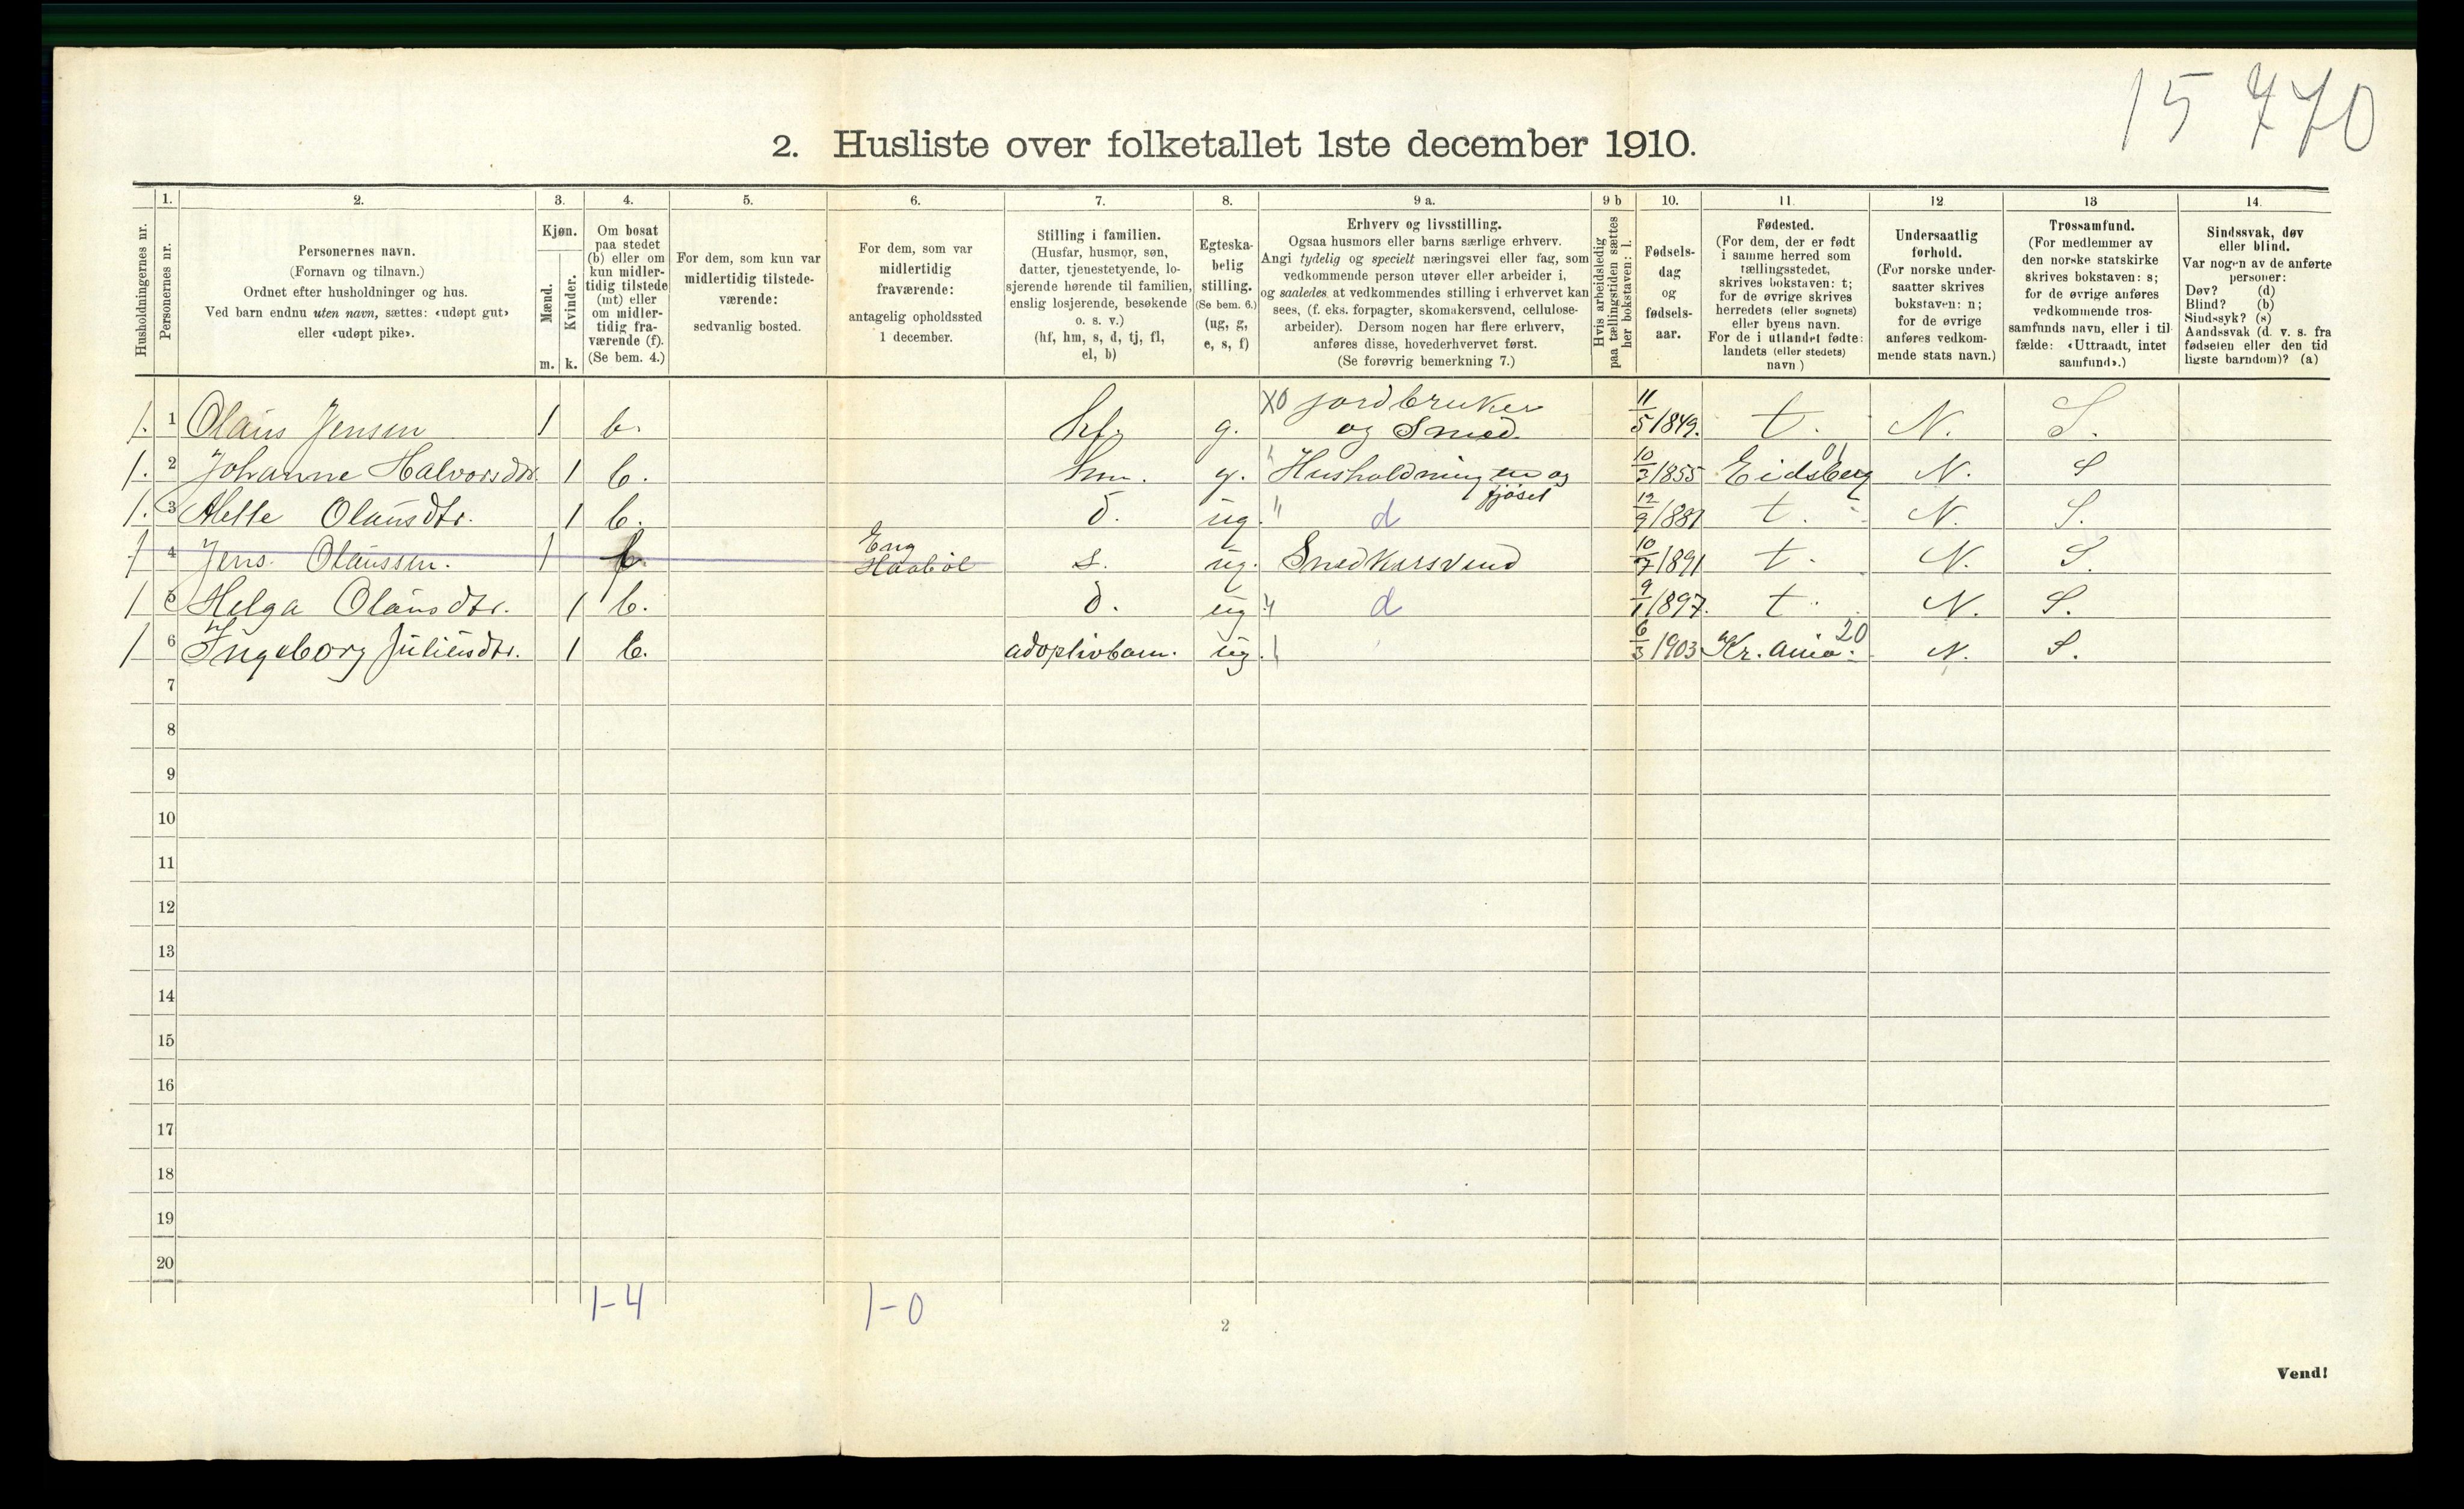 15 770
2. Husliste over folketallet 1ste december 1910.
Husholdningernes nr.
1.
Personernes nr.
2.
Personernes navn.
(Fornavn og tilnavn.)
Ordnet efter husholdninger og hus.
Ved barn endnu uten navn, sættes: «udøpt gut»
eller «udøpt pike».
3.
Kjøn.
Mænd.
Kvinder.
m. k.
4.
Om bosat
paa stedet
(b) eller om
kun midler-
tidig tilstede
(mt) eller
om midler-
tidig fra-
værende (f).
(Se bem. 4.)
5.
For dem, som kun var
midlertidig tilstede-
værende:
sedvanlig bosted.
6.
For dem, som var
midlertidig
fraværende:
antagelig opholdssted
1 december.
7.
Stilling i familien.
(Husfar, husmor, søn,
datter, tjenestetyende, lo-
sjerende hørende til familien,
enslig losjerende, besøkende
o. s. v.)
(hf, hm, s, d, tj, fl,
el, b)
8.
Egteska-
belig
stilling.
(Se bem. 6.)
(ug, g,
e, s, f)
9 a.
Erhverv og livsstilling.
Ogsaa husmors eller barns særlige erhverv.
Angi tydelig og specielt næringsvei eller fag, som
vedkommende person utøver eller arbeider i,
og saaledes at vedkommendes stilling i erhvervet kan
sees, (f. eks. forpagter, skomakersvend, cellulose-
arbeider). Dersom nogen har flere erhverv,
anføres disse, hovederhvervet først.
(Se forøvrig bemerkning 7.)
9 b
Hvis arbeidsledig
paa tællingstiden sættes
her bokstaven: l.
10.
Fødsels-
dag
og
fødsels-
aar.
11.
Fødested.
(For dem, der er født
i samme herred som
tællingsstedet,
skrives bokstaven: t;
for de øvrige skrives
herredets (eller sognets)
eller byens navn.
For de i utlandet fødte:
landets (eller stedets)
navn )
12
Undersaatlig
forhold.
(For norske under-
saatter skrives
bokstaven: n;
for de øvrige
anføres vedkom-
mende stats navn.)
13
Trossamfund.
(For medlemmer av
den norske statskirke
skrives bokstaven: s;
for de øvrige anføres
vedkommende tros-
samfunds navn, eller i til-
fælde: «Uttraadt, intet
samfund».)
14.
Sindssvak, døv
eller blind.
Var nogen av de anførte
personer:
Døv? (d)
Blind? (b)
Sindssyk? (s)
Aandssvak (d. v. s. fra
fødselen eller den tid
ligste barndom)? (a)
1. 1 Olaus Jensen 1 b. hf. g. XO jordbruker og Smed. 11/5 1849. t. N. S.
1. 2 Johanne Halvorsdtr. 1 b. hm. g. Husholdningen og fjøset 10/3 1855 Eidsberg 01 N. S
1. 3 Mette Olausdtr. 1 b. d. ug. " d 12/9 1881 t. N. S.
1 4 Jens Olaussen. 1 f. Eng Haabøl s. ug. Snedkersvend 10/7 1891 t. N. S.
1 5 Helga Olausdtr. 1 b. d. ug d 9/1 1897. t. N. S.
1 6 Ingeborg Juliusdtr. 1 b. adoptivbarn. ug. 6/3 1903 Kr.ania. 20 N. S.
7
8
9
10
11
12
13
14
15
16
17
18
19
20
1-4 1-0
2
Vend!